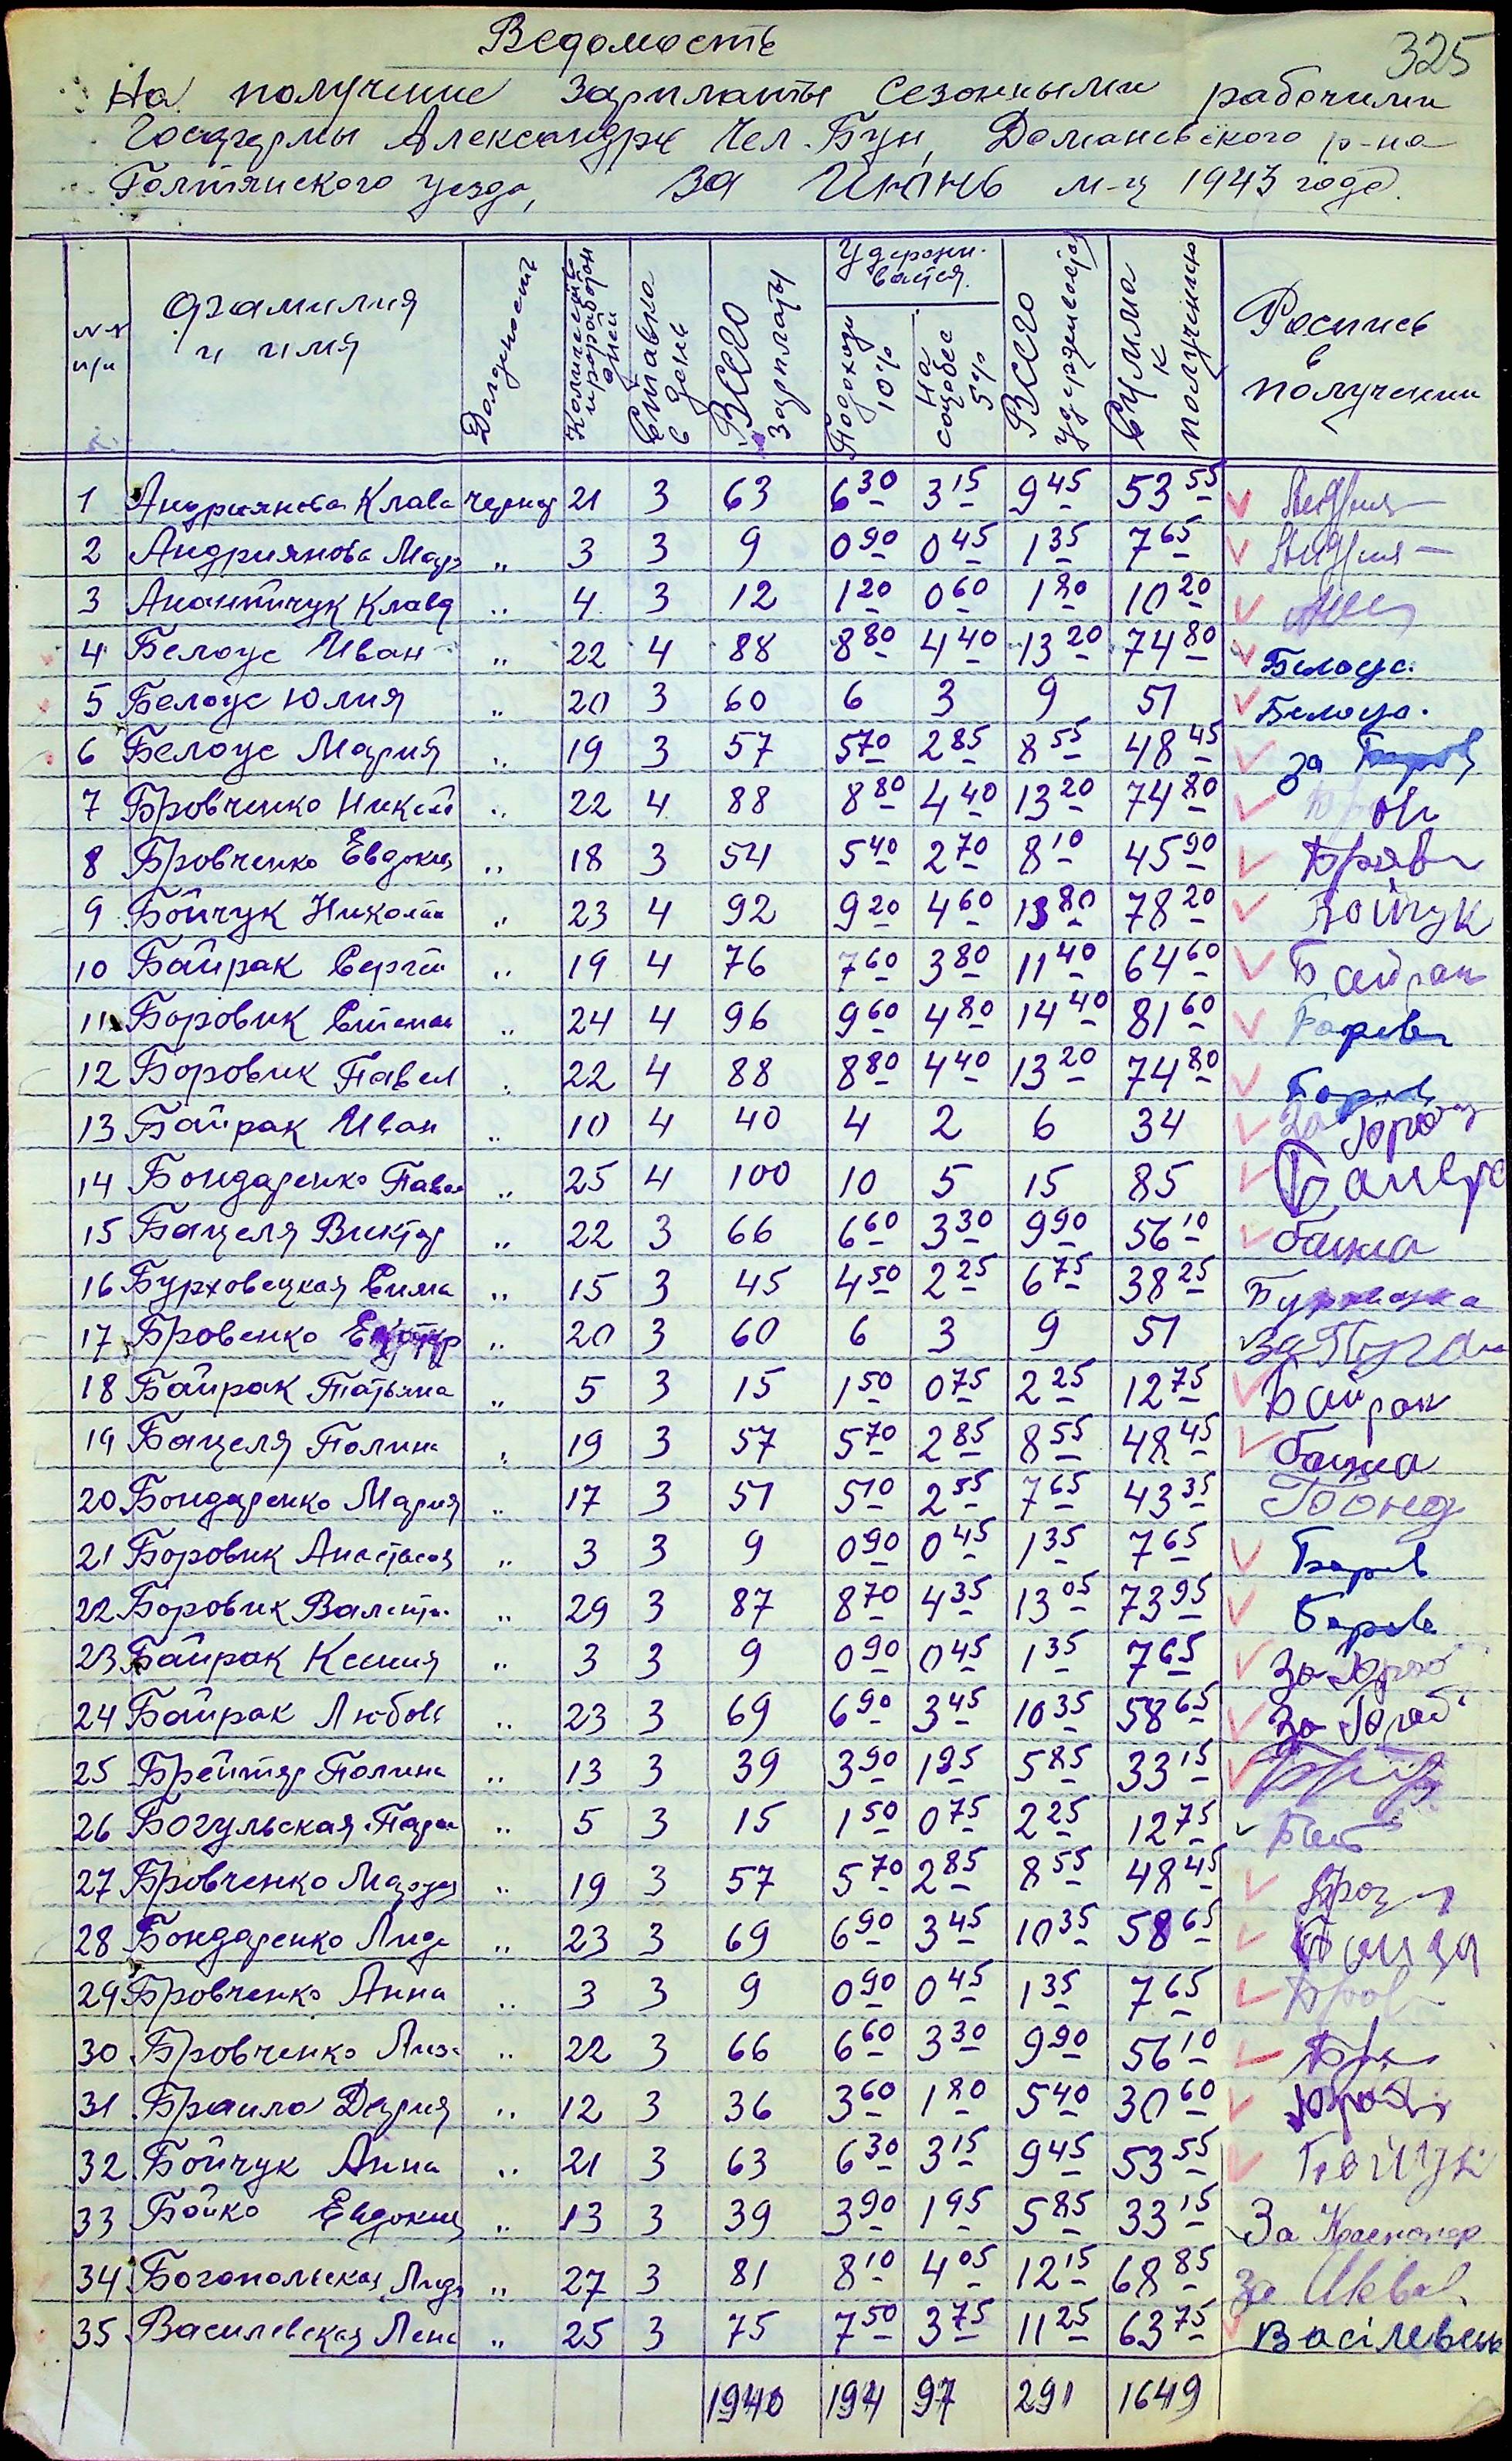 325
Ведомость
На получение зарплаты сезонными рабочими
Госфермы Александру Чел. Бун, Доманевского р-на
Голтянского уезда, за Июнь м-ц 1943 года.
№№ п/п
фамилия и имя
Должность
Количество проработан дней
Ставка в день
Всего зарплаты
Удержи-вается.
Подоход 10%
на соцобес 5%
Всего удерживается
Сумма к получению
Роспись в получении
1 Андриянова Клава чернор 21 3 63 6 30 3 15 9 45 53 55
2 Андриянова Мар „ 3 3 9 0 90 0 45 1 35 7 65
3 Анантичук Клавд „ 4 3 12 1 20 0 60 1 80 10 20
4 Белоус Иван „ 22 4 88 8 80 4 40 13 20 74 80 Белоус.
5 Белоус Юлия „ 20 3 60 6 3 9 51 Белоус.
6 Белоус Мария „ 19 3 57 5 70 2 85 8 55 48 45 за
7 Бровченко Никол „ 22 4 88 8 80 4 40 13 20 74 80 Бров
8 Бровченко Евдокия „ 18 3 54 5 40 2 70 8 10 45 90 Бров
9 Бойчук Николай „ 23 4 92 9 20 4 60 13 80 78 20 Бойчук
10 Байрак Сергей „ 19 4 76 7 60 3 80 11 40 64 60 Байрак
11 Боровик Степан „ 24 4 96 9 60 4 80 14 40 81 60 Боров
12 Боровик Павел „ 22 4 88 8 80 4 40 13 20 74 80 Боров
13 Байрак Иван „ 10 4 40 4 2 6 34 За
14 Бондаренко Павел „ 25 4 100 10 5 15 85
15 Бацеля Виктор „ 22 3 66 6 60 3 30 9 90 56 10 бацела
16 Бурховецкая Сима „ 15 3 45 4 50 2 25 6 75 38 25
17 Бровенко Екатер „ 20 3 60 6 3 9 51 за
18 Байрак Татьяна „ 5 3 15 1 50 0 75 2 25 12 75 Байрак
19 Бацеля Полина „ 19 3 57 5 70 2 85 8 55 48 45 бацела
20 Бондаренко Мария „ 17 3 51 5 10 2 55 7 65 43 35 Бонд
21 Боровик Анастасия „ 3 3 9 0 90 0 45 1 35 7 65 Боров
22 Боровик Валенти. „ 29 3 87 8 70 4 35 13 05 73 95 Боров
23 Байрак Ксения „ 3 3 9 0 90 0 45 1 35 7 65 За
24 Байрак Любовь „ 23 3 69 6 90 3 45 10 35 58 65 За
25 Брейтер Полина „ 13 3 39 3 90 1 95 5 85 33 15
26 Богульская Парас „ 5 3 15 1 50 0 75 2 25 12 75
27 Бровченко Марфа „ 19 3 57 5 70 2 85 8 55 48 45
28 Бондаренко Лида „ 23 3 69 6 90 3 45 10 35 58 65
29 Бровченко Анна „ 3 3 9 0 90 0 45 1 35 7 65 Бров
30 Бровченко Лиза „ 22 3 66 6 60 3 30 9 90 56 10
31 Браило Дария „ 12 3 36 3 60 1 80 5 40 30 60
32 Бойчук Анна „ 21 3 63 6 30 3 15 9 45 53 55 Бойчук
33 Бойко Евдокия „ 13 3 39 3 90 1 95 5 85 33 15 За
34 Богопольская Лида „ 27 3 81 8 10 4 05 12 15 68 85 За
35 Василевская Лена „ 25 3 75 7 50 3 75 11 25 63 75 Васілевськ
1940 194 97 291 1649